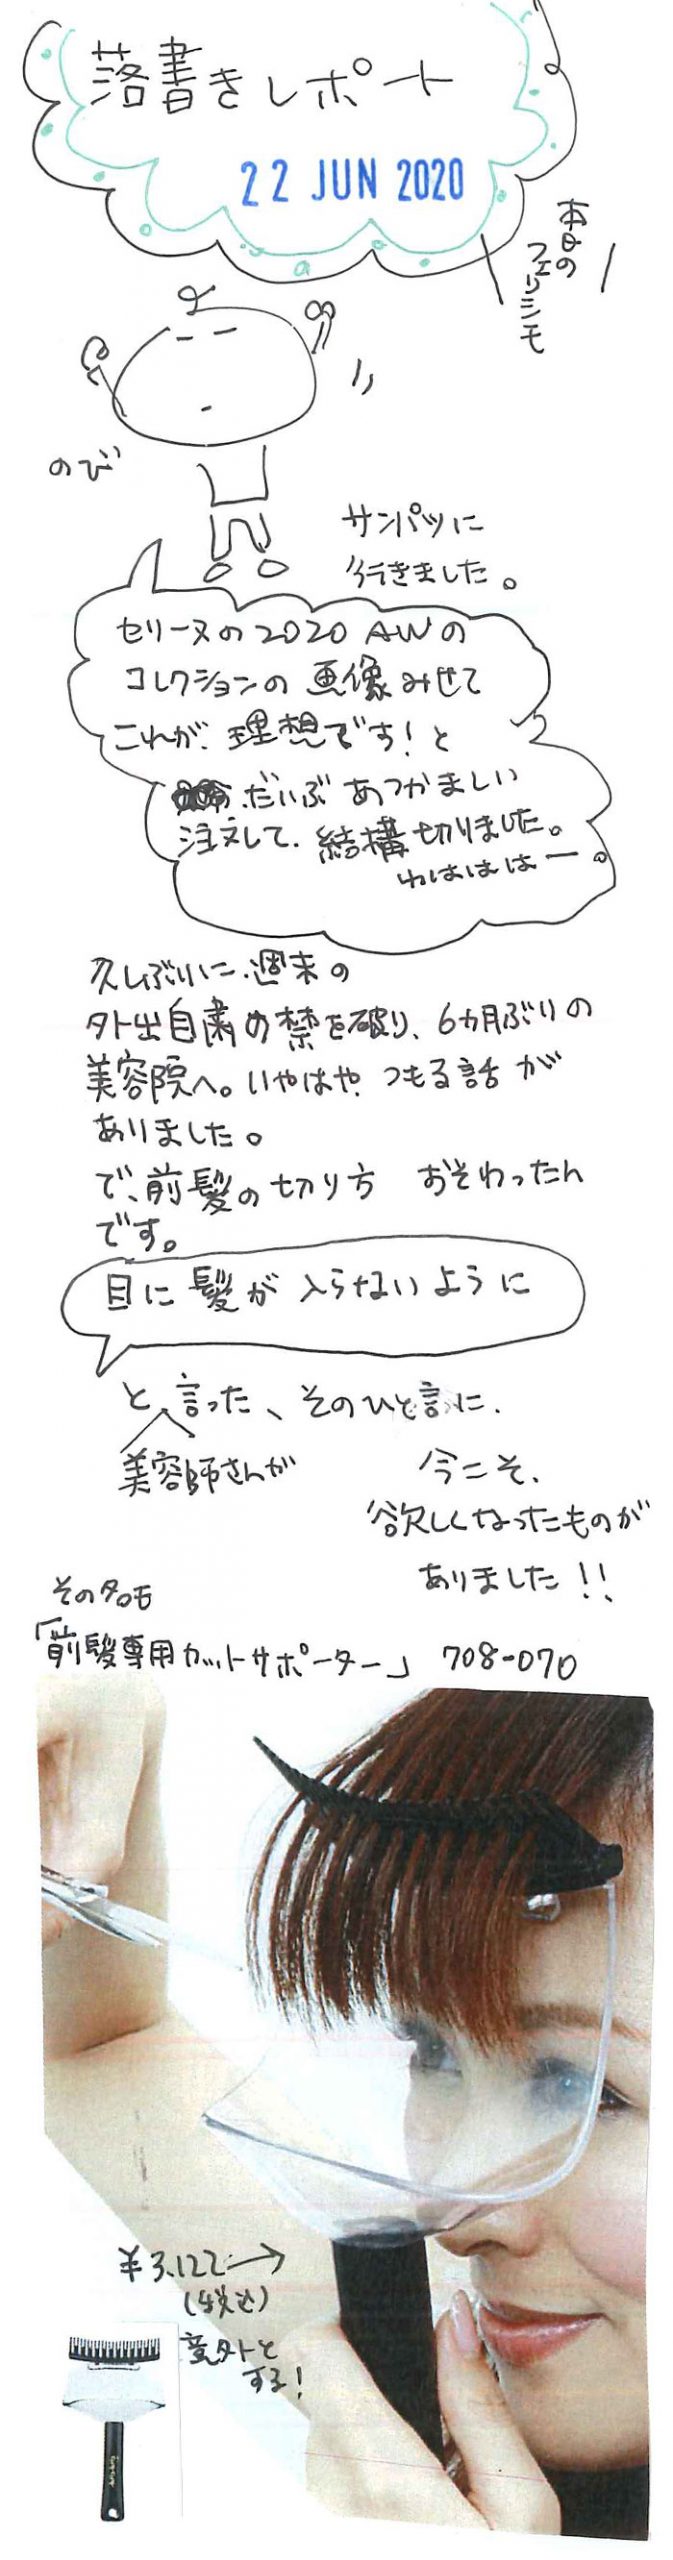 落書きレポート
22 JUN 2020
本日の
フェリシモ
のび
サンパツに
行きました。
セリーヌの2020 AWの
コレクションの画像みせて
これが、理想です!と
だいぶあつかましい
注文して、結構切りました。
わはははー。
久しぶりに、週末の
外出自粛の禁を破り、6カ月ぶりの
美容院へ。いやはや、つもる話が
ありました。
で、前髪の切り方 おそわったん
です。
目に髪が入らないように
と、言った、そのひと言に、
美容師さんが
今こそ、
欲しくなったものが
ありました!!
その名も
「前髪専用カットサポーター」 708-070
¥3,122→
(税込)
意外と
する!